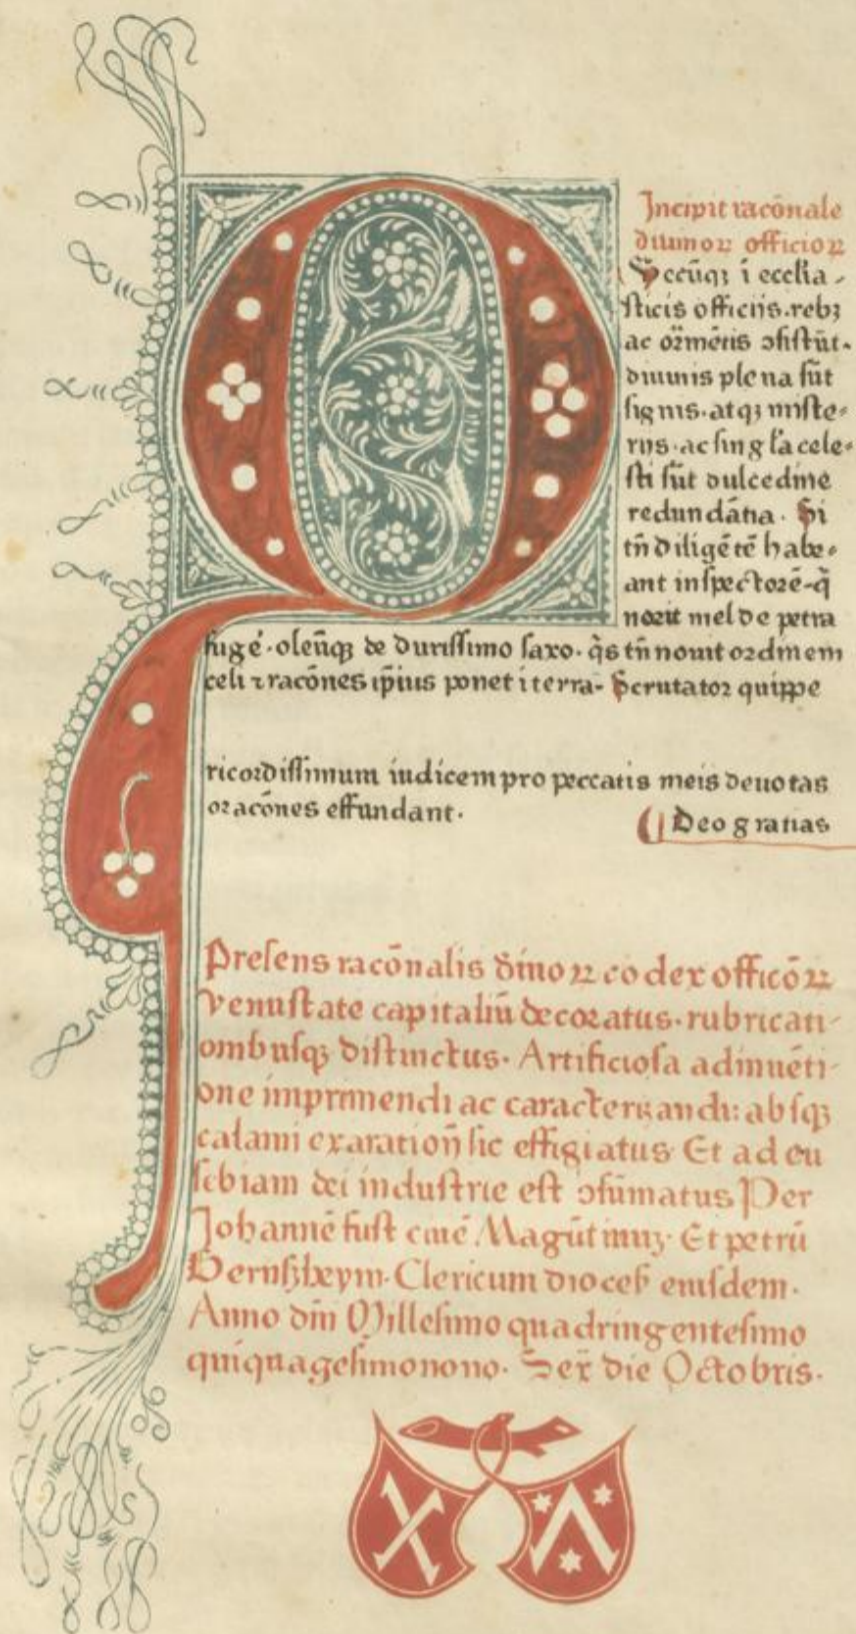 Incipit racōnale
diuinoꝝ officioꝝ
Q
Veccūqꝫ ī ecclia-
sticis officiis.rebꝫ
ac oꝛ̄mētis ꝯsistūt.
diuinis plena sūt
signis.atqꝫ miste-
riis.ac singl'a cele-
sti sūt dulcedine
redundātia. Si
tn̄ diligētē habe-
ant inspectorē-q̄
norit mel de petra
suge᷒.oleūqꝫ de durissimo saxo. q̇s tn̄ nouit ordinem
celi ⁊ racōnes ip̄ius ponet i terra- Scrutator quippe
ricordissimum iudicem pro peccatis meis deuotas
oracōnes effundant.
Deo gratias
Presens racōnalis diuinoꝝ codex officōꝝ
venustate capitaliū decoratus. rubricati-
onibusqꝫ distinctus. Artificiosa adinuēti-
one imprimendi ac caracterizandi: absqꝫ
calami exaration̄ sic effigiatus Et ad eu
sebiam dei industrie est ꝯsūmatus Per
Johannē fust ciuē Magūtinuꝫ. Et petrū
Gernszheym. Clericum dioces᷒ eiusdem.
Anno dn̄i Millesimo quadringentesimo
quīquagesimonono. Sex̄ die Octobris.